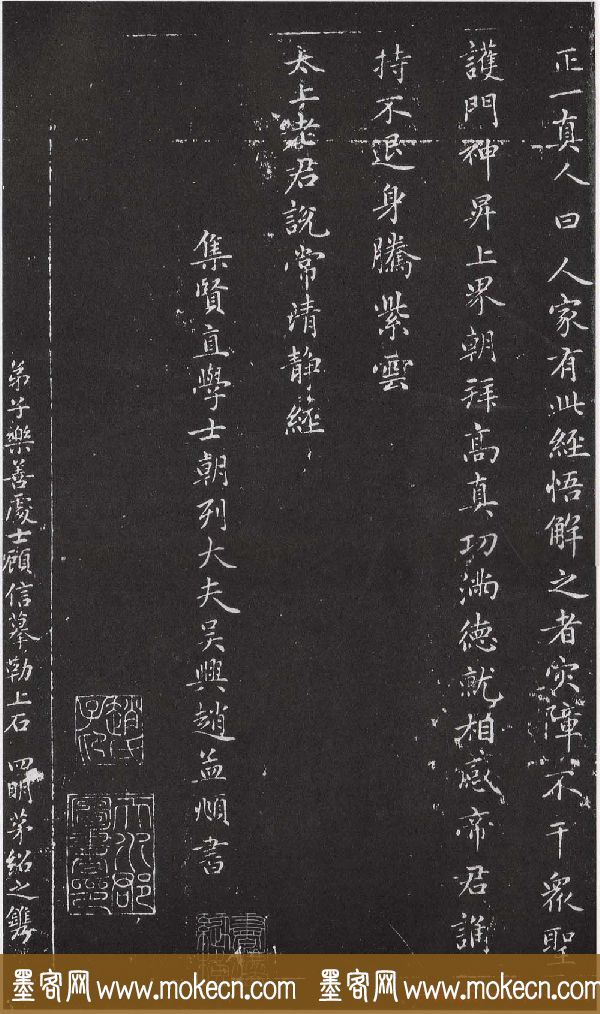 正一真人曰人家有此經悟解之者灾障不干衆聖
護門神昇上界朝拜高真功滿德就相感帝君誦
持不退身騰紫雲
太上老君説常清静經
集賢直學士朝列大夫吴興趙孟頫書
趙氏子昂
天水郡圖書印
弟子樂善處士顧信摹勒上石 四明茅紹之鐫
墨客网 www.mokecn.com 墨客网 www.mokecn.com